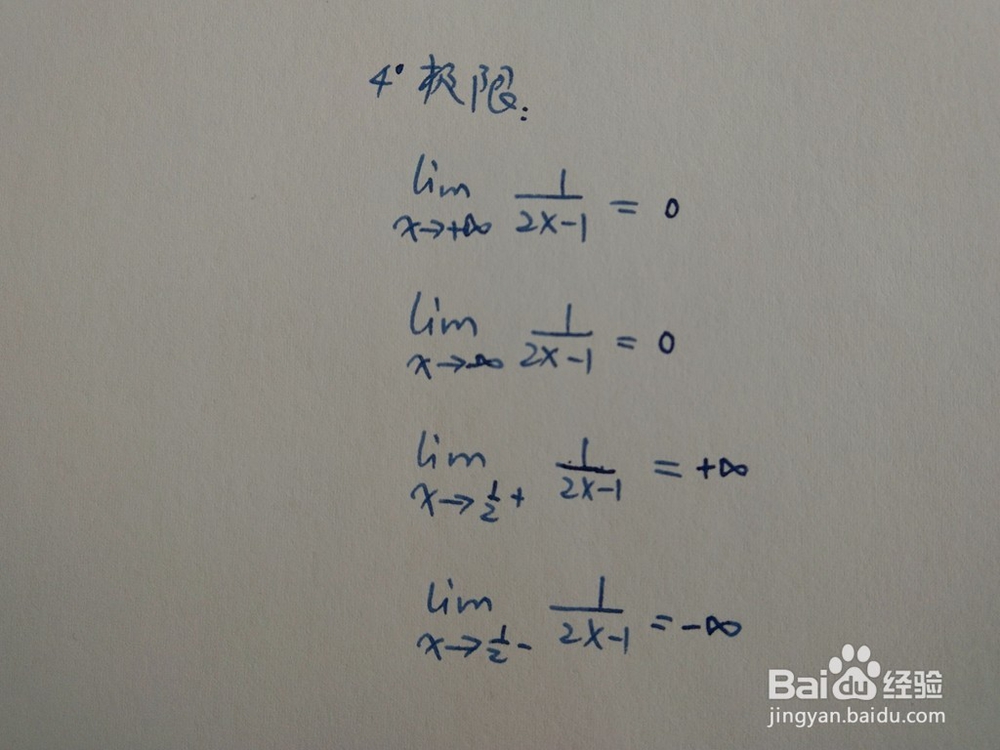 4° 极限:
lim x→+∞ 1/(2x-1) = 0
lim x→-∞ 1/(2x-1) = 0
lim x→1/2+ 1/(2x-1) = +∞
lim x→1/2- 1/(2x-1) = -∞
Baidu经验
jingyan.baidu.com